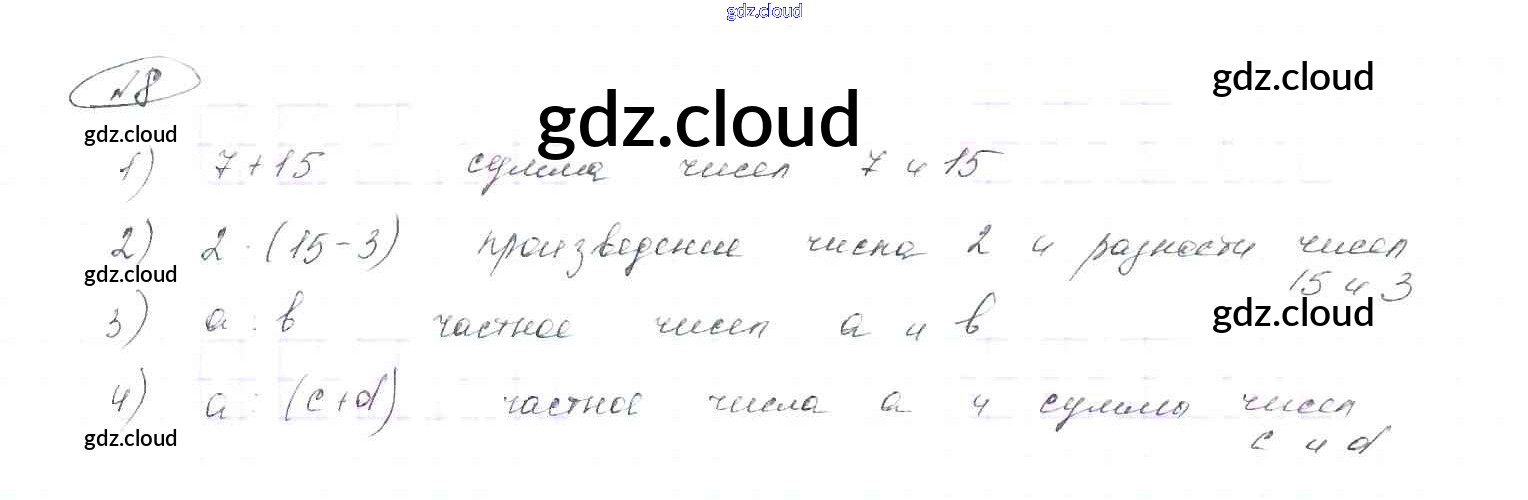 gdz.cloud
№8
gdz.cloud
gdz.cloud
gdz.cloud
1) 7+15 сумма чисел 7 и 15
2) 2 · (15-3) произведение числа 2 и разности чисел
15 и 3
gdz.cloud
gdz.cloud
3) a : b частное чисел a и b
4) a : (c+d) частное числа a и суммы чисел
c и d
gdz.cloud